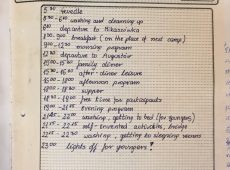 5³⁰ reveille
5³⁰-6¹⁰ washing and cleaning up
6¹⁰ departure to Mikaszówka
8⁰⁰-9⁰⁰ breakfast (on the place of next camp)
9⁰⁰-12³⁰ morning program
12³⁰ departure to Augustów
15⁰⁰-15³⁰ family dinner
15³⁰-16⁰⁰ after-dinner leisure
16⁰⁰-18⁰⁰ afternoon program
18⁰⁰-18³⁰ supper
18³⁰-19⁰⁰ free time for participants
19⁰⁰-21⁰⁰ evening program
washing, getting to bed (for youngers)
self-invented activities, bridge
washing, getting to sleeping rooms
23⁰⁰ lights off for youngers!